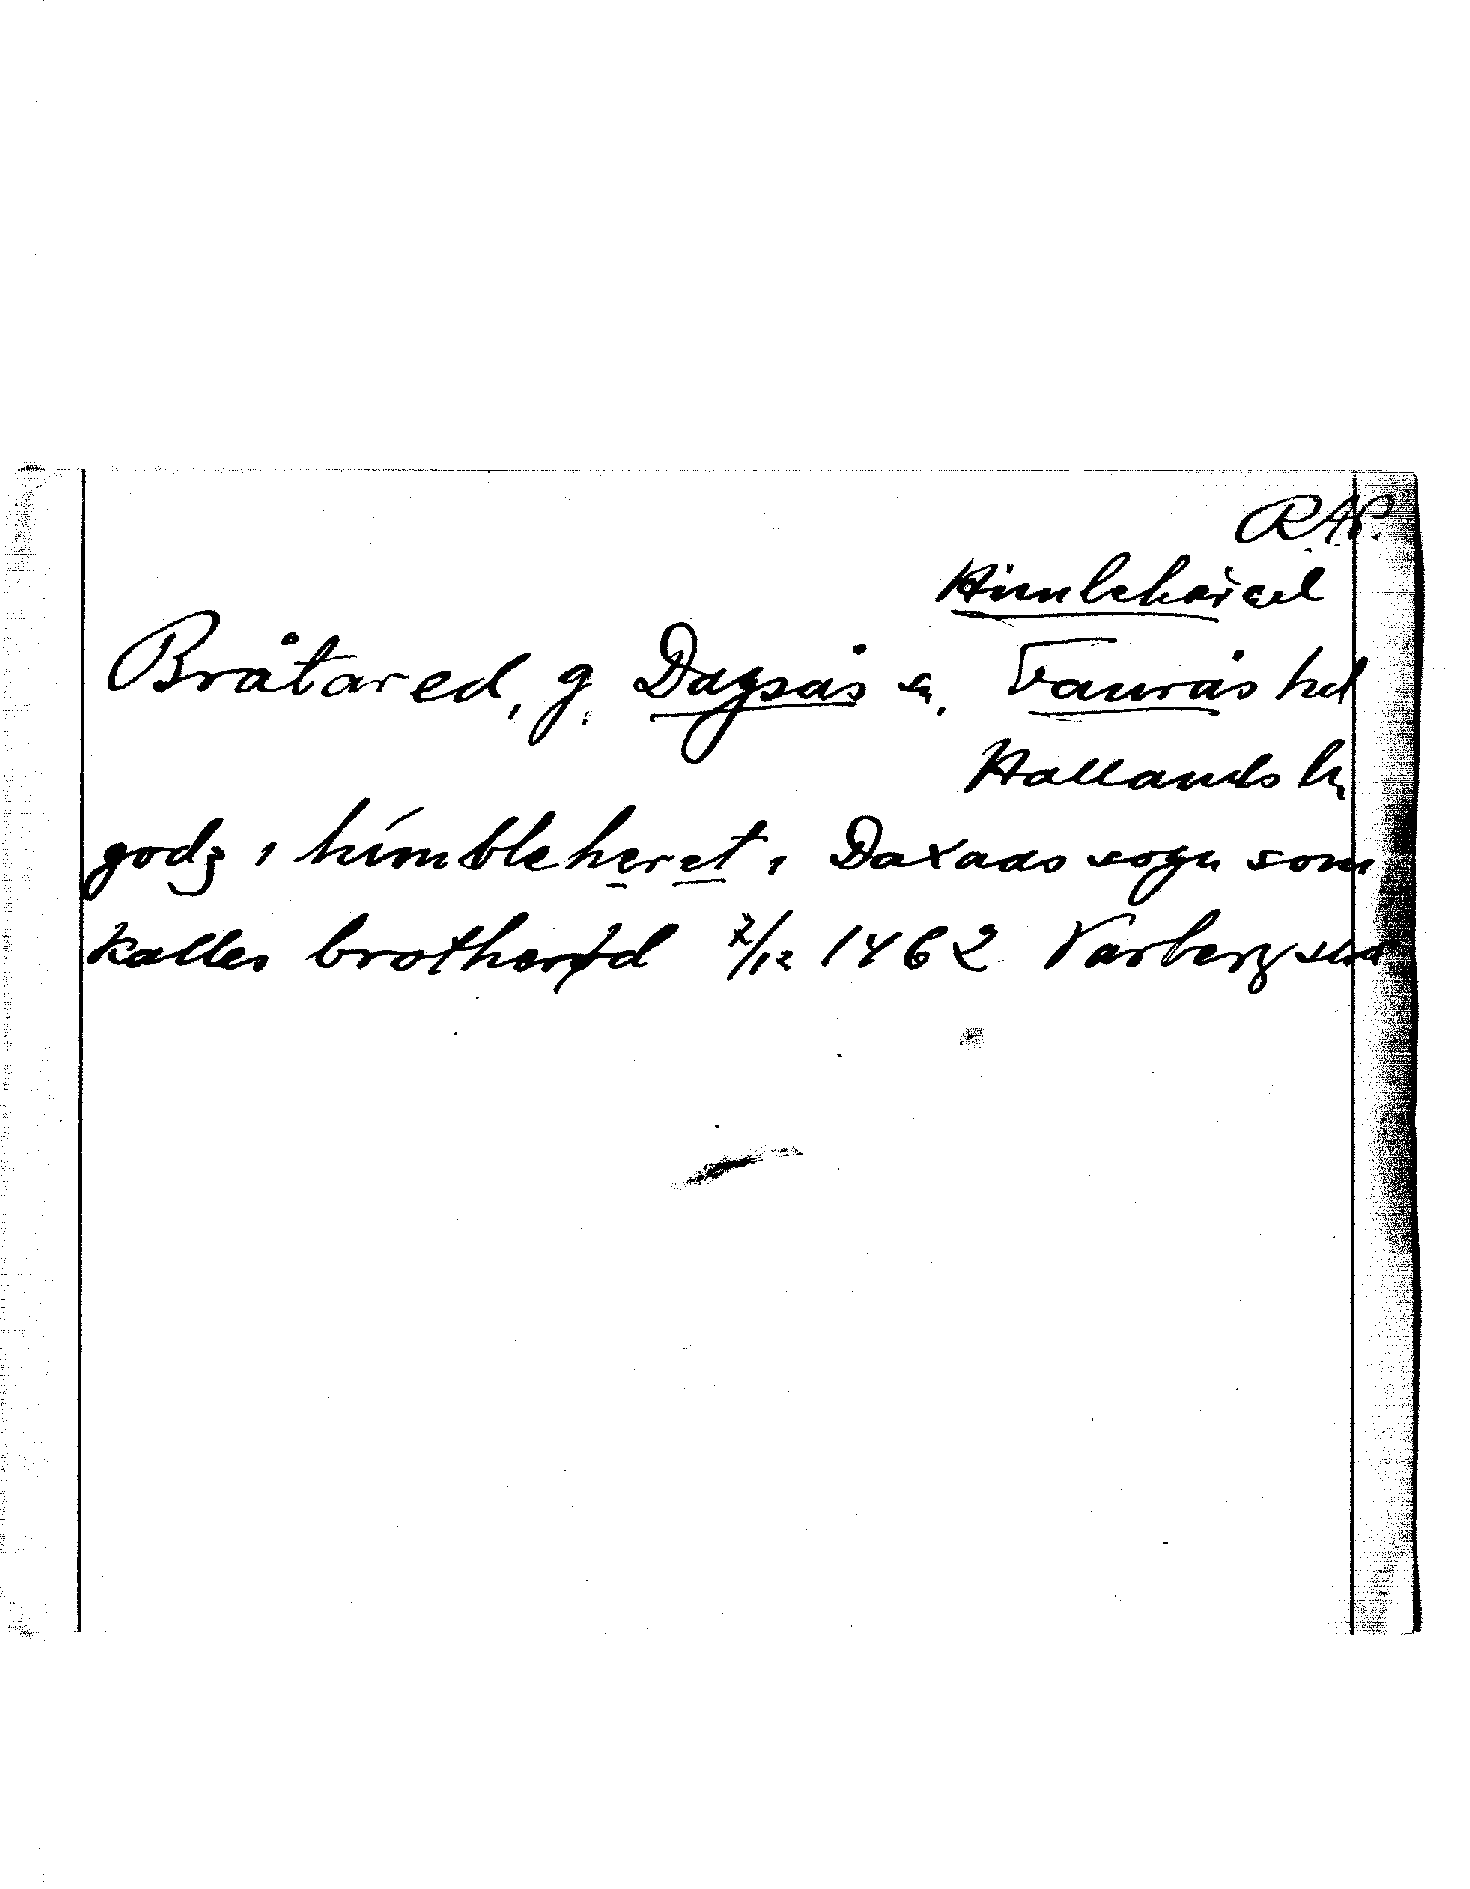 RAP.
Himlehärad
Bråtared, g. Dagsås sn, Faurås hd
Hallands l.
godz i himbleheret i Daxaas sogn som
kalles brotherød 7/12 1462 Varberg